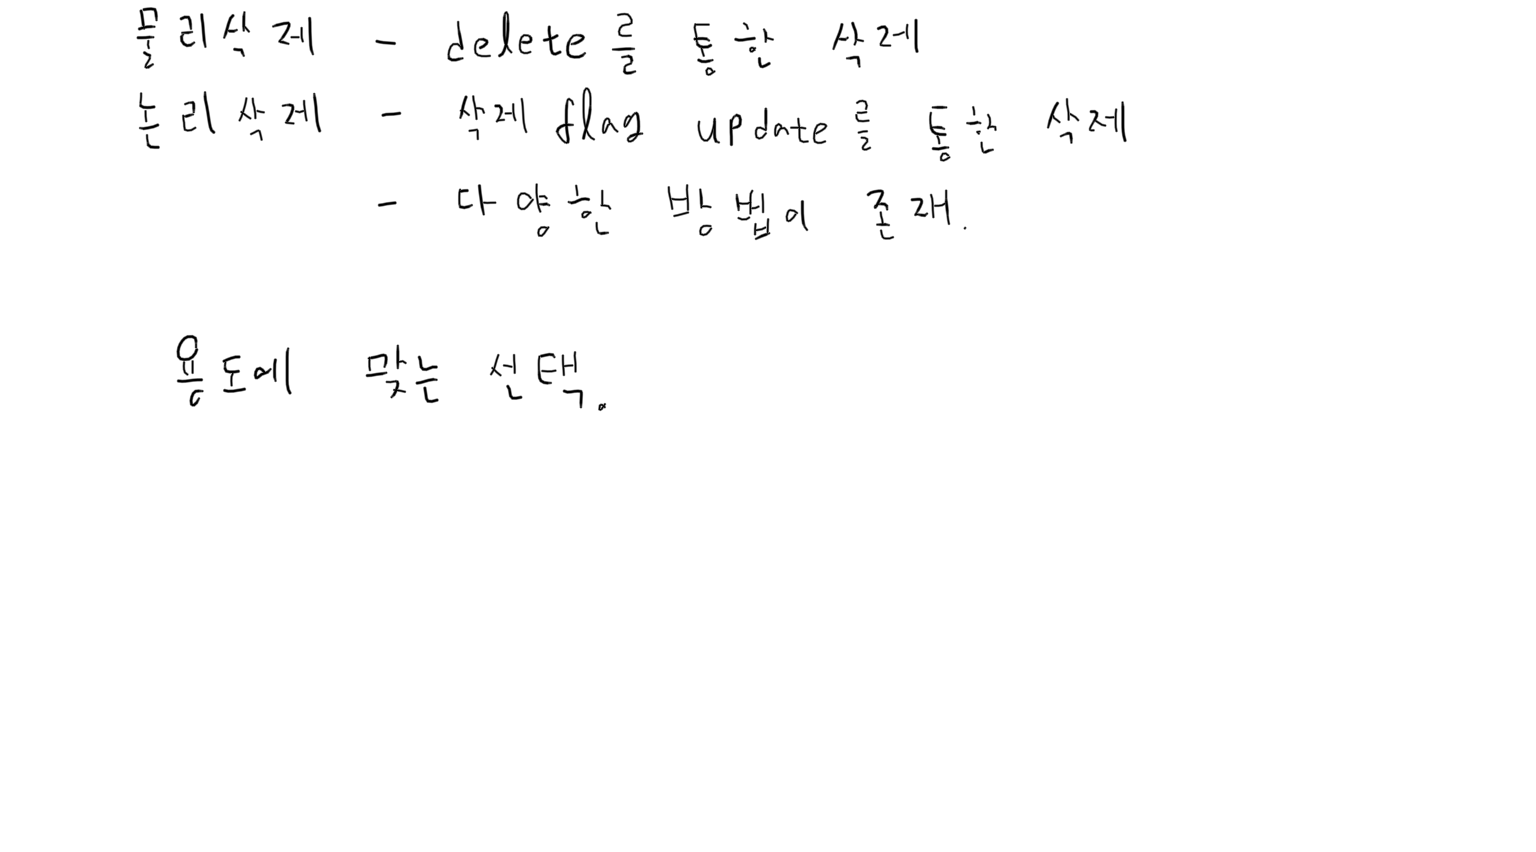 물리삭제 - delete를 통한 삭제
논리삭제 - 삭제 flag update를 통한 삭제
- 다양한 방법이 존재.
용도에 맞는 선택.